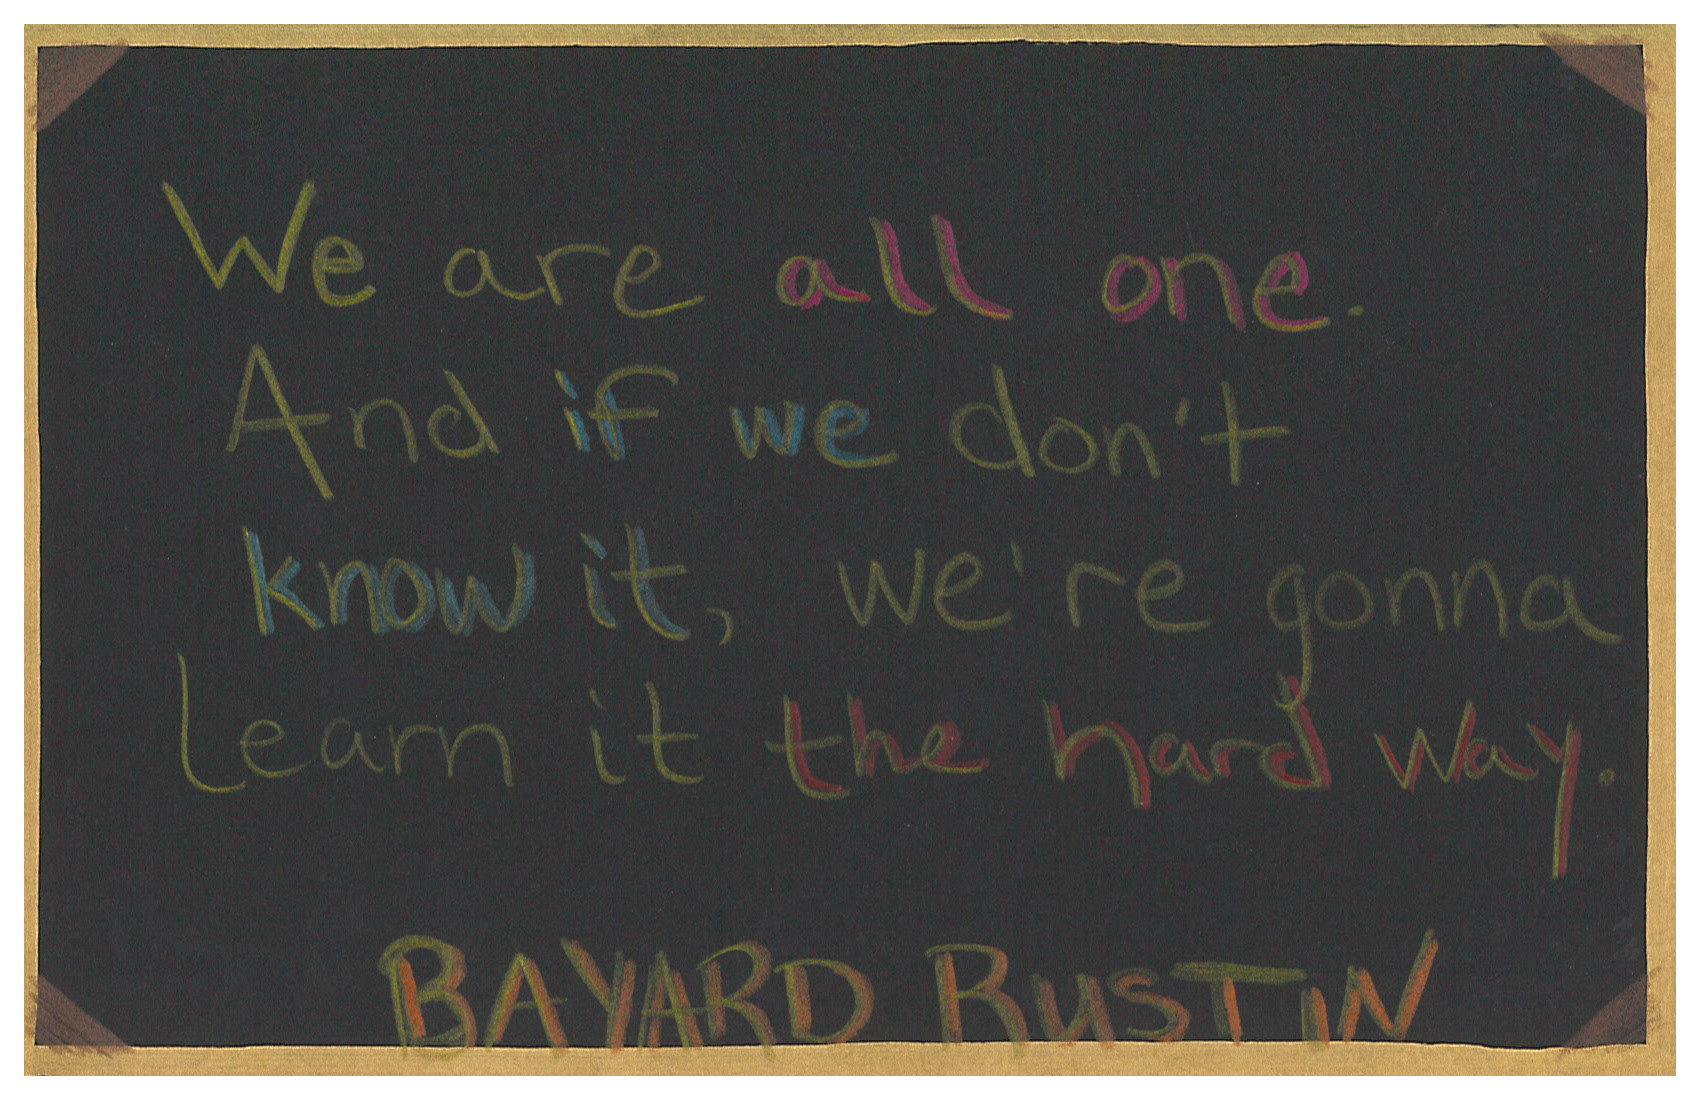 We are all one.
And if we don't
know it, we're gonna
Learn it the hard way.
BAYARD RUSTIN